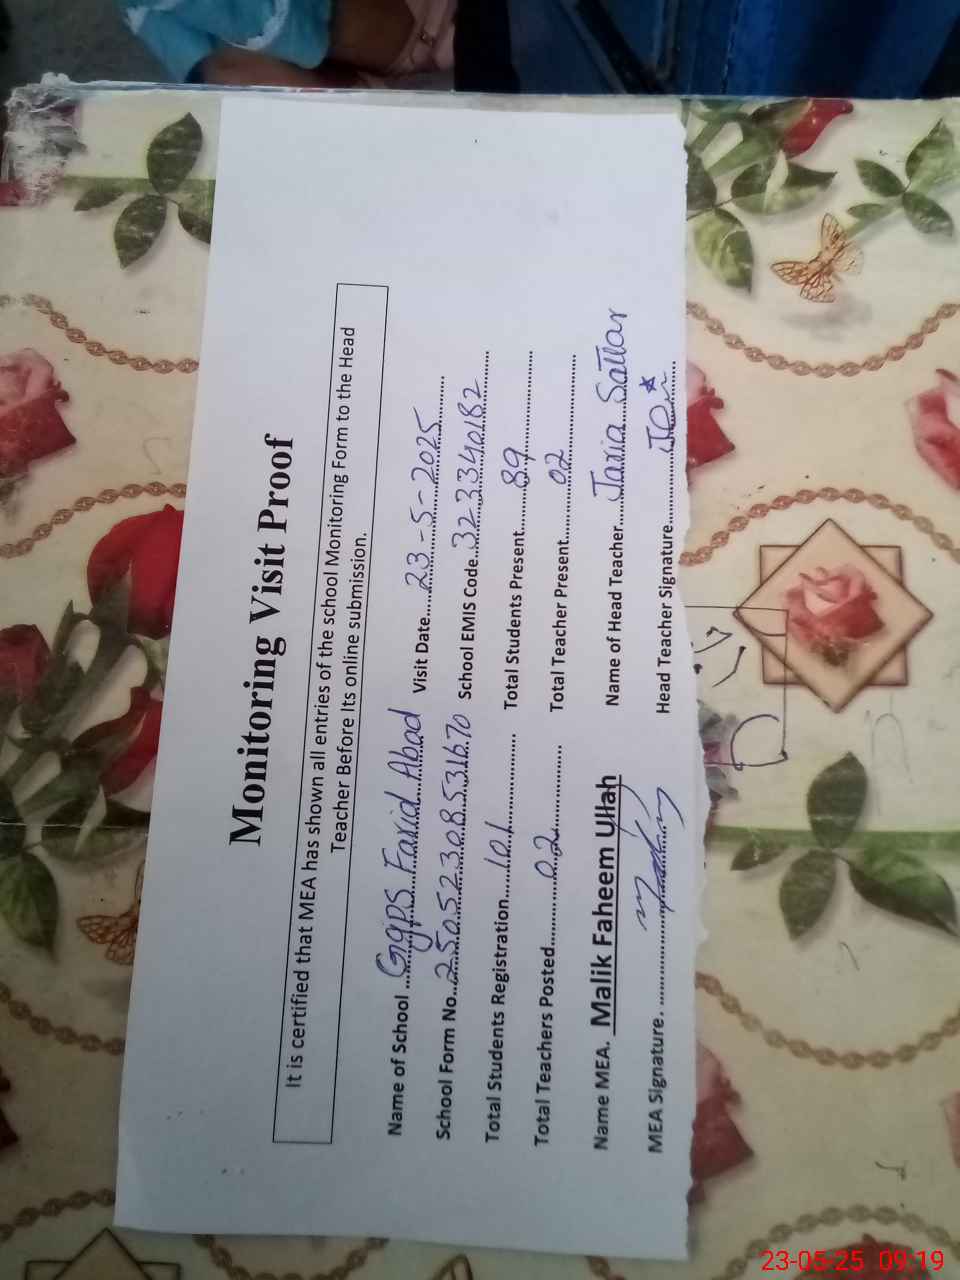 Monitoring Visit Proof
It is certified that MEA has shown all entries of the school Monitoring Form to the Head
Teacher Before Its online submission.
Name of School ...GgPS Farid Abad Visit Date......23-5-2025......
School Form No...25052308531670 School EMIS Code...323340182......
Total Students Registration.......101............ Total Students Present.......89............
Total Teachers Posted............02............ Total Teacher Present............02............
Name MEA. Malik Faheem Ullah Name of Head Teacher.... Sattar
MEA Signature. ............ Head Teacher Signature............
23-05-25 09:19